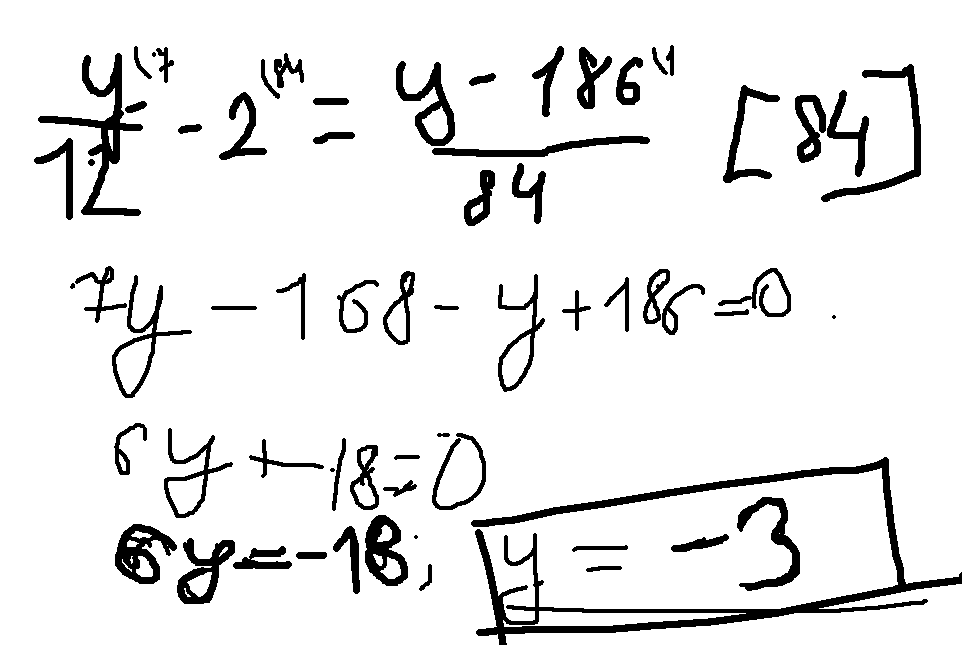 y(7/12 - 2(84 = y - 186(1/84 [84]
7y - 168 - y + 186 = 0
6y + 18 = 0
6y = -18; y = -3